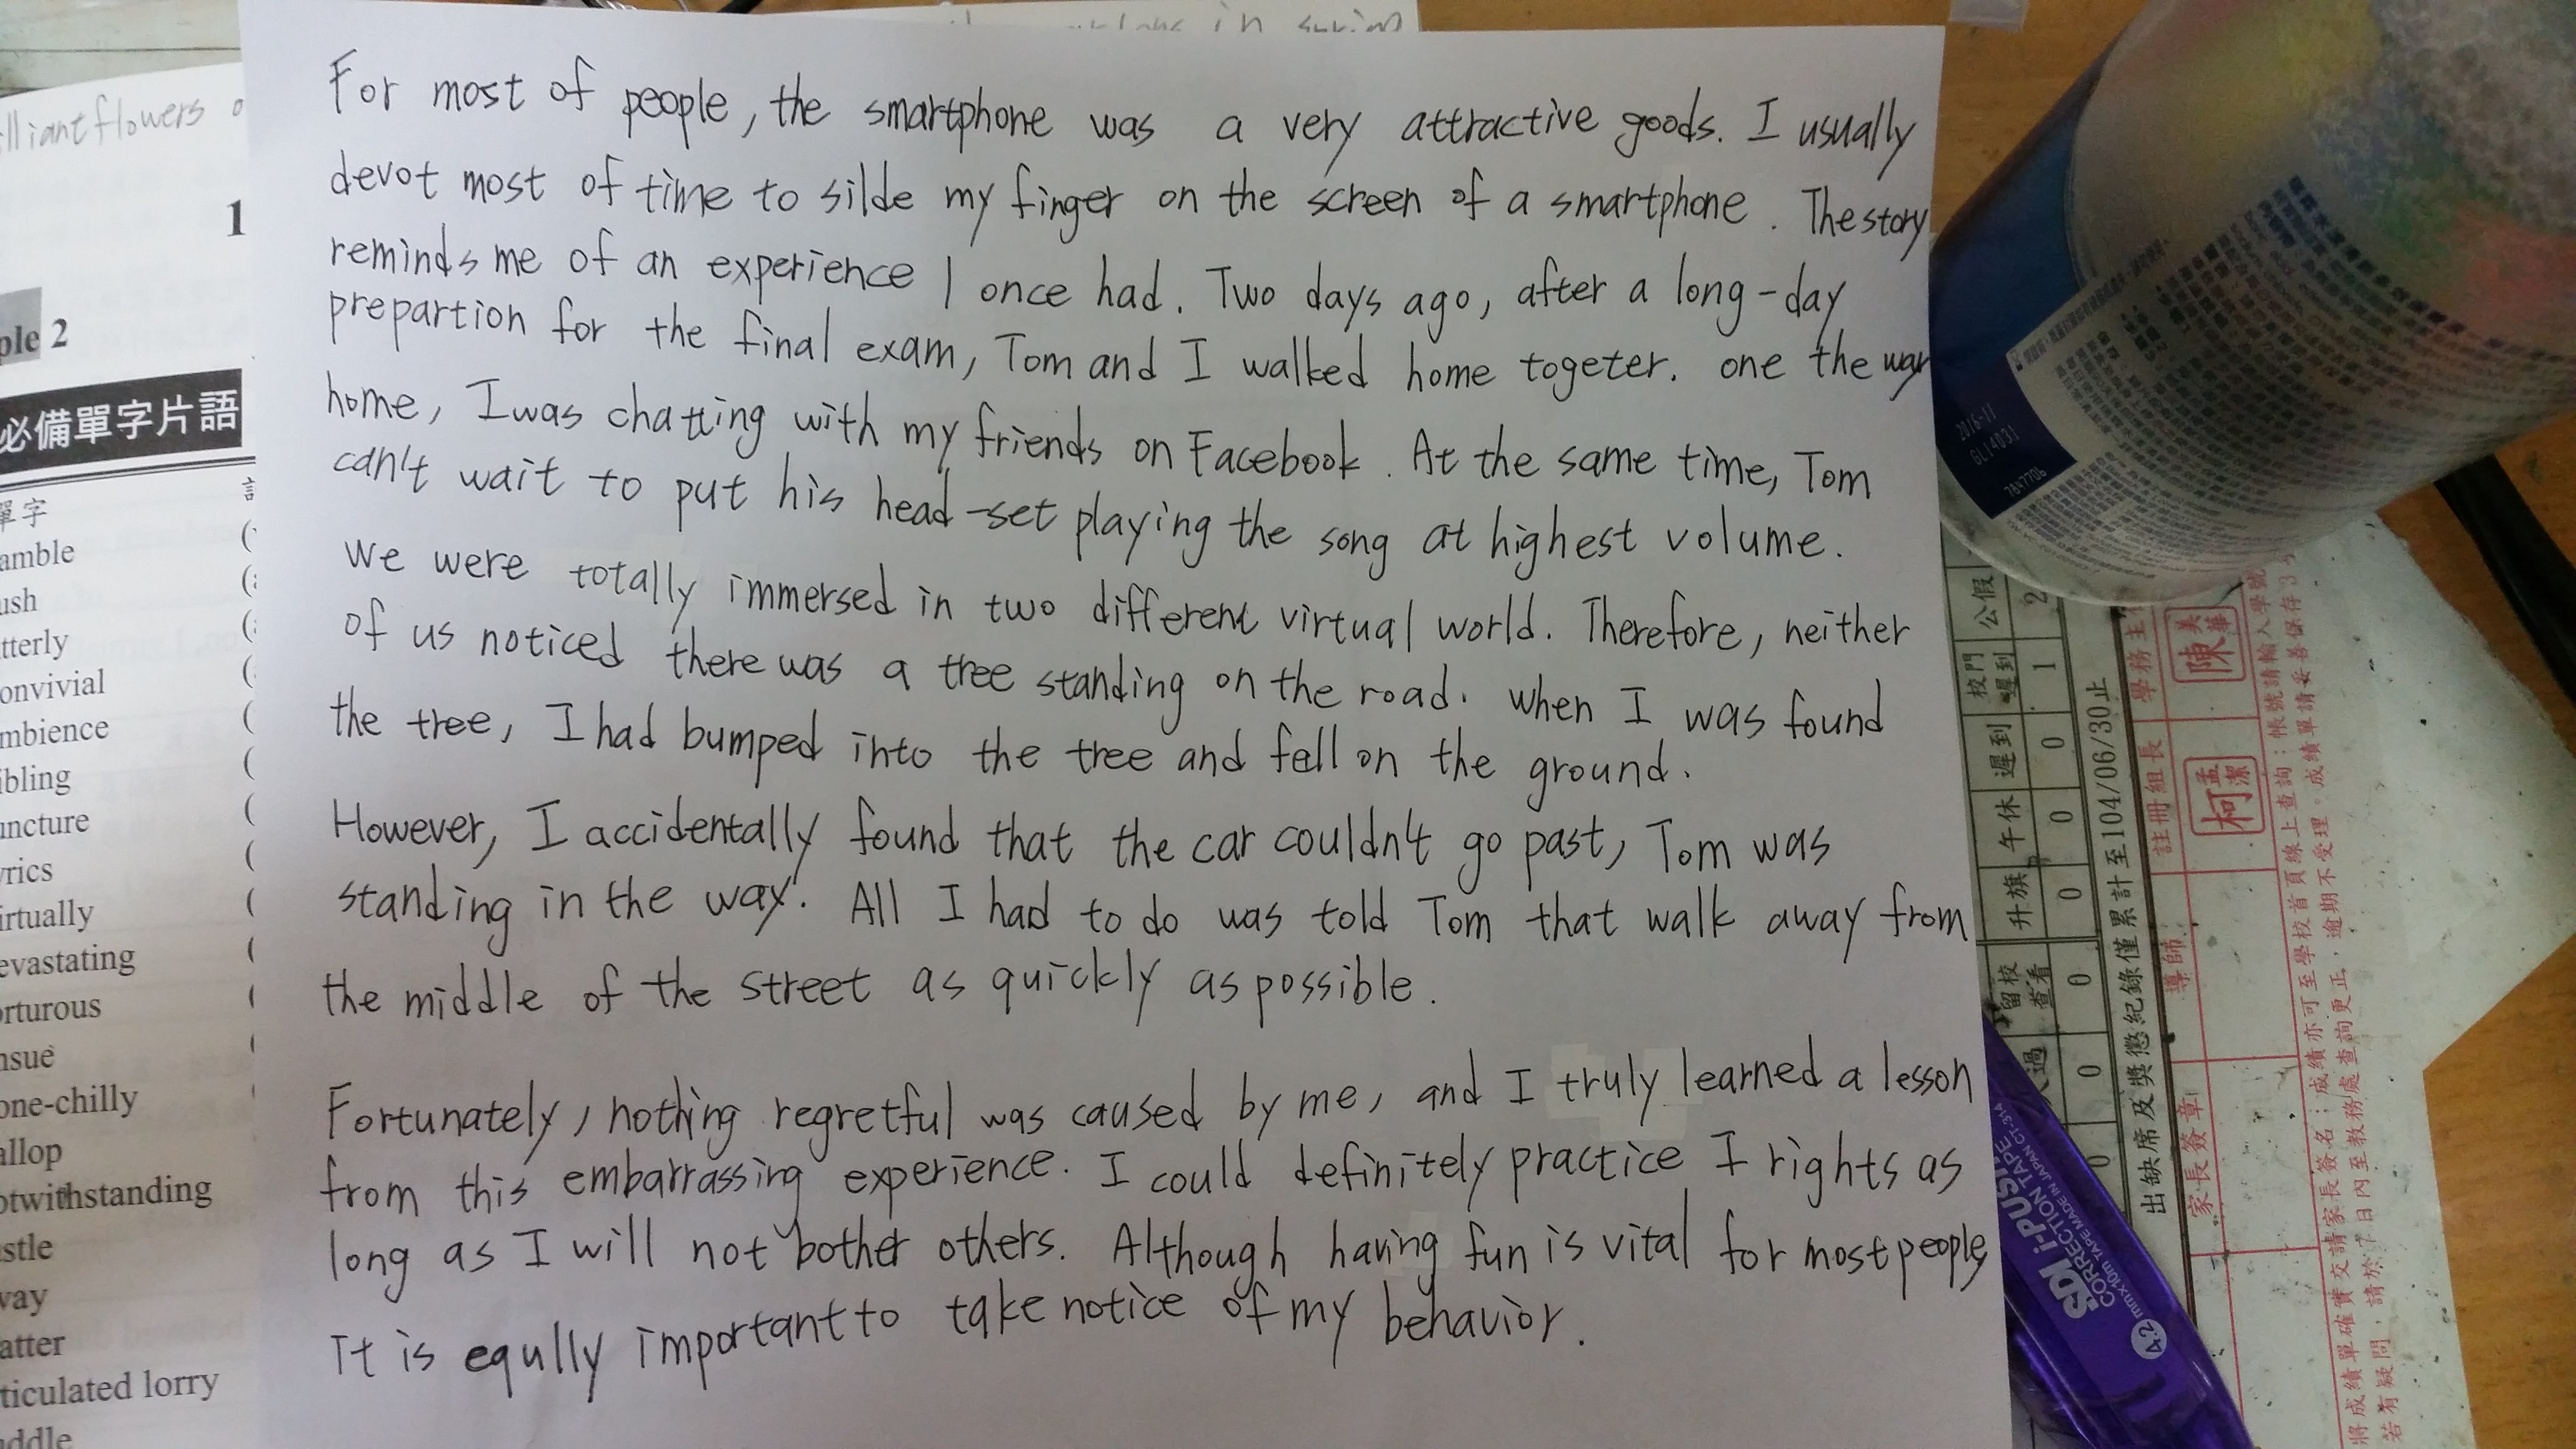 For most of people, the smartphone was a very attractive goods. I usually
devot most of time to silde my finger on the screen of a smartphone. The story
reminds me of an experience I once had. Two days ago, after a long-day
prepartion for the final exam, Tom and I walked home togeter. one the way
home, I was chatting with my friends on Facebook. At the same time, Tom
can't wait to put his head-set playing the song at highest volume.
We were totally immersed in two different virtual world. Therefore, neither
of us noticed there was a tree standing on the road. When I was found
the tree, I had bumped into the tree and fell on the ground.
However, I accidentally found that the car couldn't go past, Tom was
standing in the way. All I had to do was told Tom that walk away from
the middle of the street as quickly as possible.
Fortunately, nothing regretful was caused by me, and I truly learned a lesson
from this embarrassing experience. I could definitely practice I rights as
long as I will not bother others. Although having fun is vital for most people
It is eqully important to take notice of my behavior.
lliant flowers
1
ple 2
必備單字片語
單字
amble
ush
tterly
onvivial
mbience
ibling
uncture
yrics
irtually
evastating
orturous
nsue
one-chilly
allop
otwithstanding
stle
way
atter
ticulated lorry
ddle
in spring
2016-11
GL14031
7847706
公假 2
校門遲到 1
遲到 0
午休 0
升旗 0
留校查看 0
過 0
0
出缺席及獎懲紀錄僅累計至104/06/30止
學務主
陳美華
註冊組長
柯孟潔
導師
家長簽章
SDI i-PUS
CORRECTION TAPE
4.2 mm×10m TAPE MADE IN JAPAN CT-314